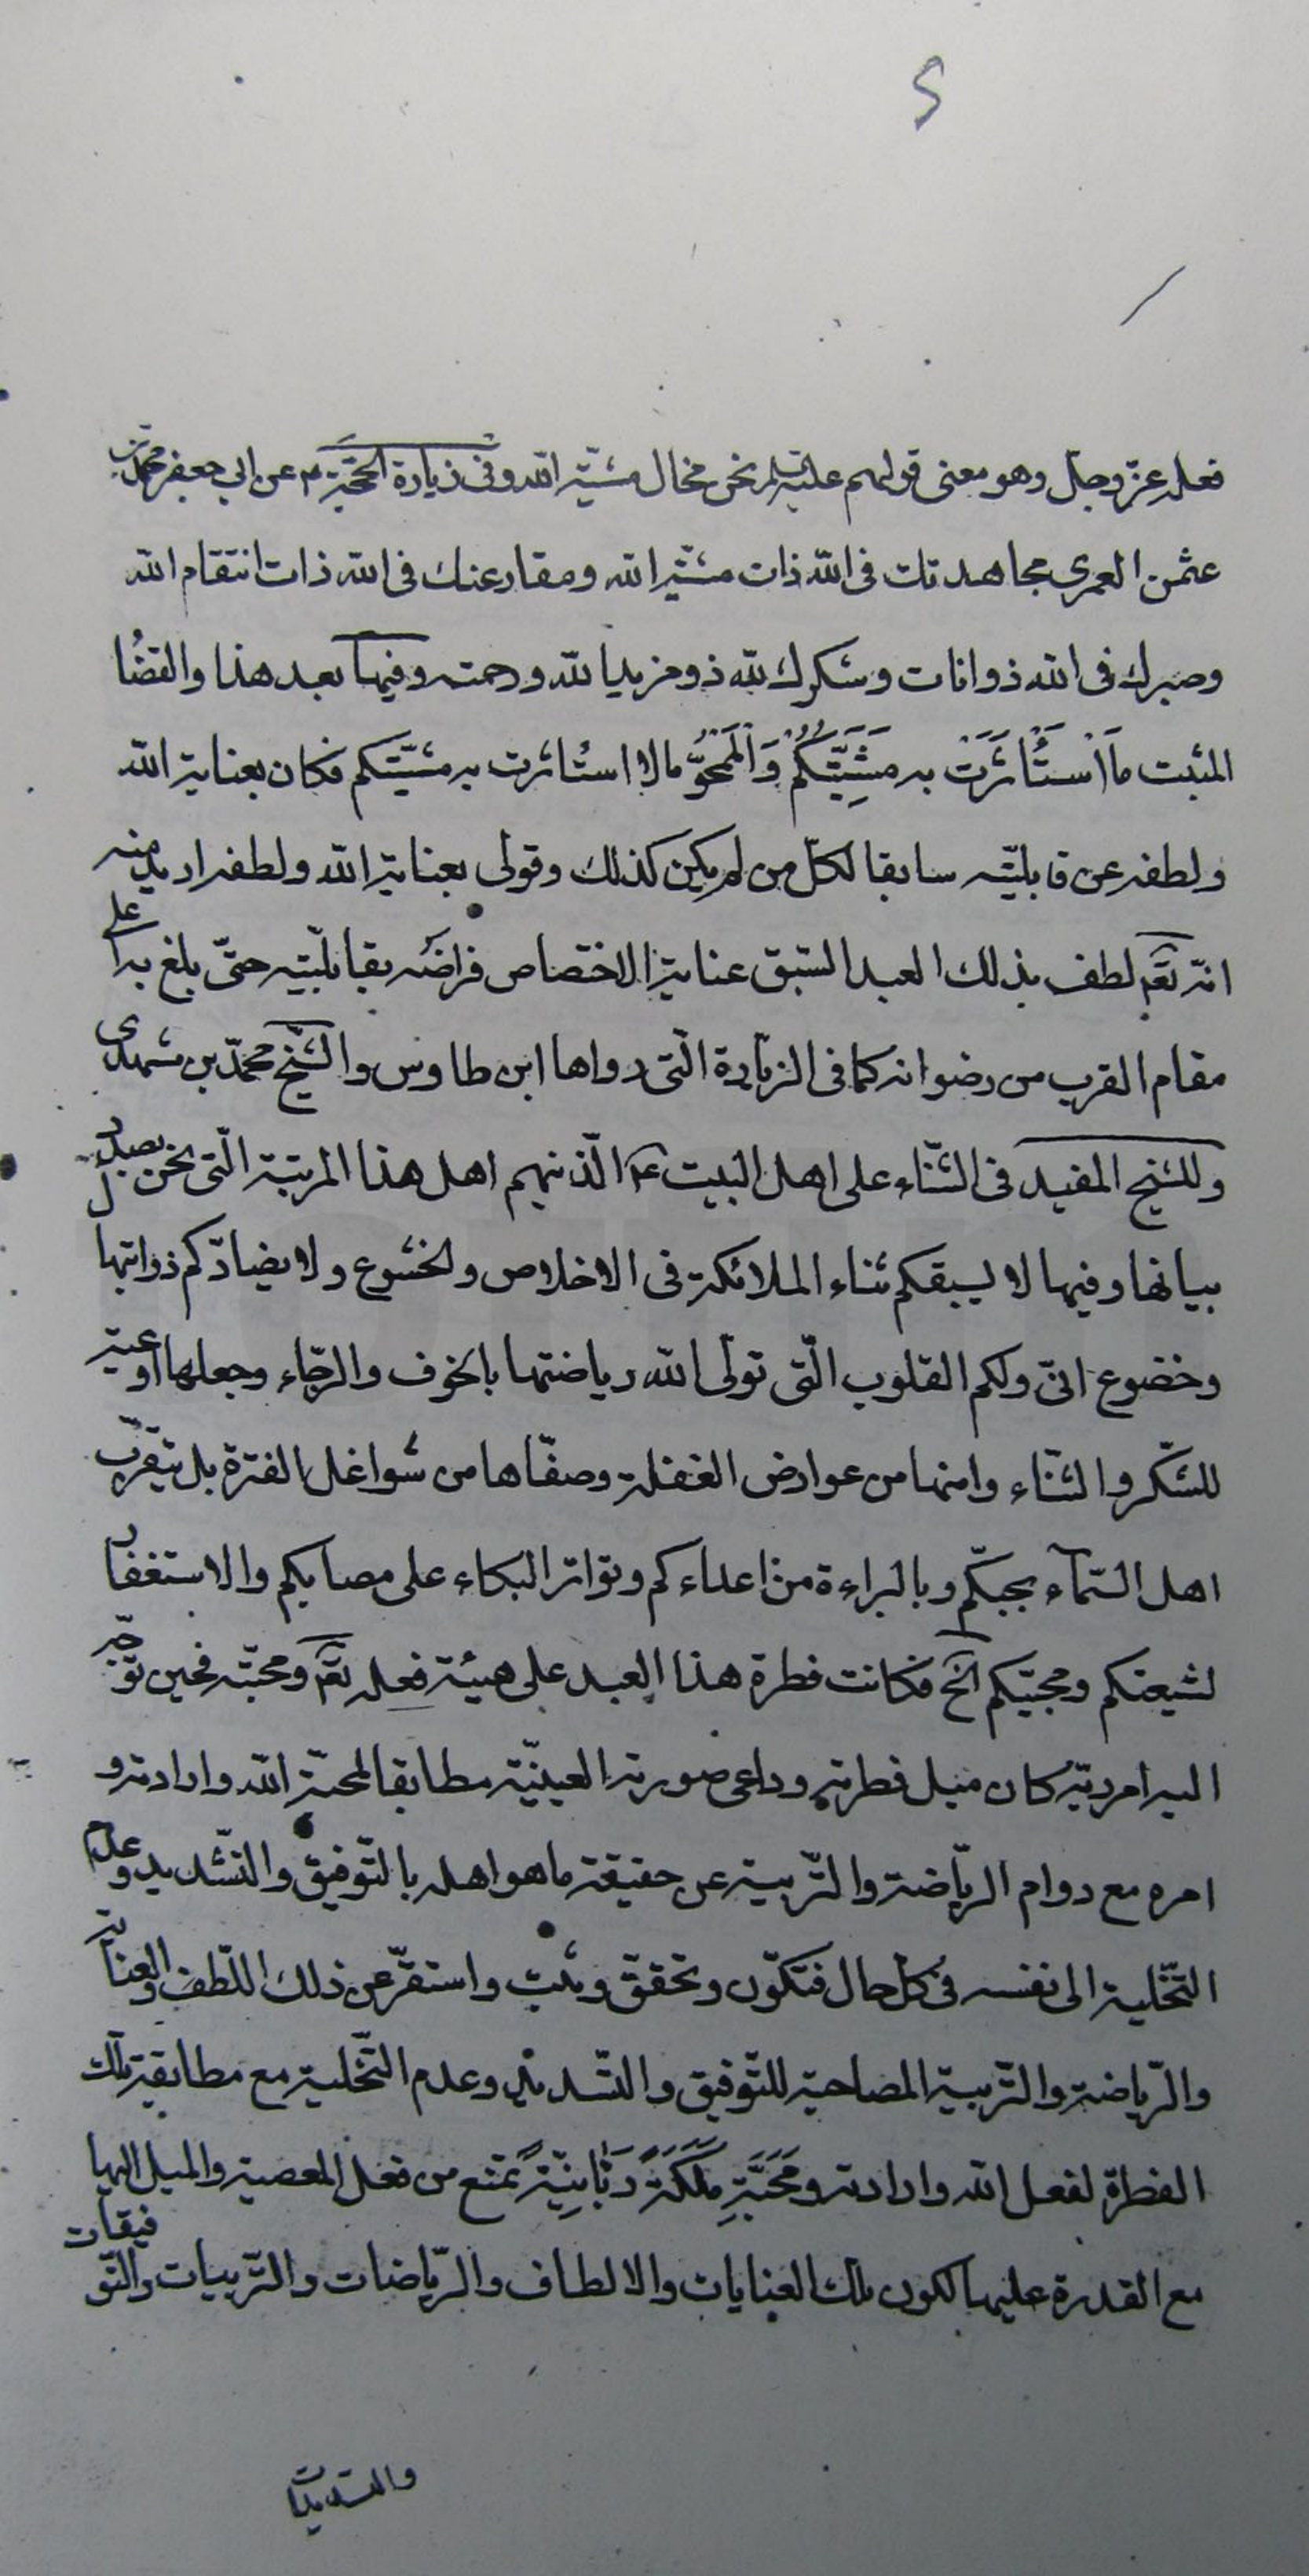 فعله عزّ وجلّ وهو معنى قولهم عليهم السلام نحن محالّ مشيّة الله وفى زيارة الحجّة ع عن ابي جعفر محمّد بن
عثمن العمرى مجاهدتك فى الله ذات مشيّة الله ومقارعتك فى الله ذات انتقام الله
وصبرك فى الله ذو اناة وشكرك لله ذو مزيد الله ورحمته وفيها بعد هذا والقضاء
المثبت مَا اسْتَأثَرَتْ به مَشِيَّتُكُمْ وَالمَمْحُوُّ ما لا استأثرت به مشيّتكم فكان بعناية الله
ولطفه عن قابليّته سابقا لكلّ من لم يكن كذلك وقولى بعناية الله ولطفه اريد منه
انّه تعم لطف بذلك العبد السّبق عناية الاختصاص فراضَه بقابليّته حتّى بلغ به اعلى
مقام القرب من رضوانه كما فى الزيّارة الّتى رواها ابن طاوس والشّيخ محمّد بن مشهدى
وللشيخ المفيد فى الثّناء على اهل البيت ع الّذينهم اهل هذا المرتبة الّتى نحن بصدد
بيانها وفيها لا يسبقكم ثناء الملائكة فى الاخلاص ولخشوع ولا يضادّكم ذو ابتها
وخضوع انىّ ولكم القلوب الّتى تولّى الله رياضتها بالخوف والرجّاء وجعلها اوعية
للشّكر والثنّاء وامنها من عوارض الغفلة وصفّاها من شواغل الفترة بل يتقرّب
اهل السّمآء بحبّكم وبالبراءة من اعداءكم وتواتر البكاء على مصابكم والاستغفار
لشيعتكم ومحبّيكم الخ فكانت فطرة هذا العبد على هيئة فعله تعم ومحبّته فحين توجّه
اليه امر ربّه كان ميل فطرته وداعى صورته العينيّة مطابقا لمحبّة الله وارادته و
امره مع دوام الريّاضة والتّربية عن حقيقة ما هو اهله بالتّوفيق والتّسديد وعدم
التّخلية الى نفسه فى كلّ حال فتكوّن وتحقق وثبت واستقرّ عن ذلك اللّطف والعناية
والرّياضة والتّربية المصاحبة للتّوفيق والتّسديد وعدم التّخلية مع مطابقة تلك
الفطرة لفعل الله وارادته ومَحَبَّتِهِ مَلَكَةً رَبَّانِيَّةً تمنع من فعل المعصية والميل اليها
مع القدرة عليها لكون تلك العنايات والالطاف والرّياضات والتّربيات والتّوفيقات
والتسديدات